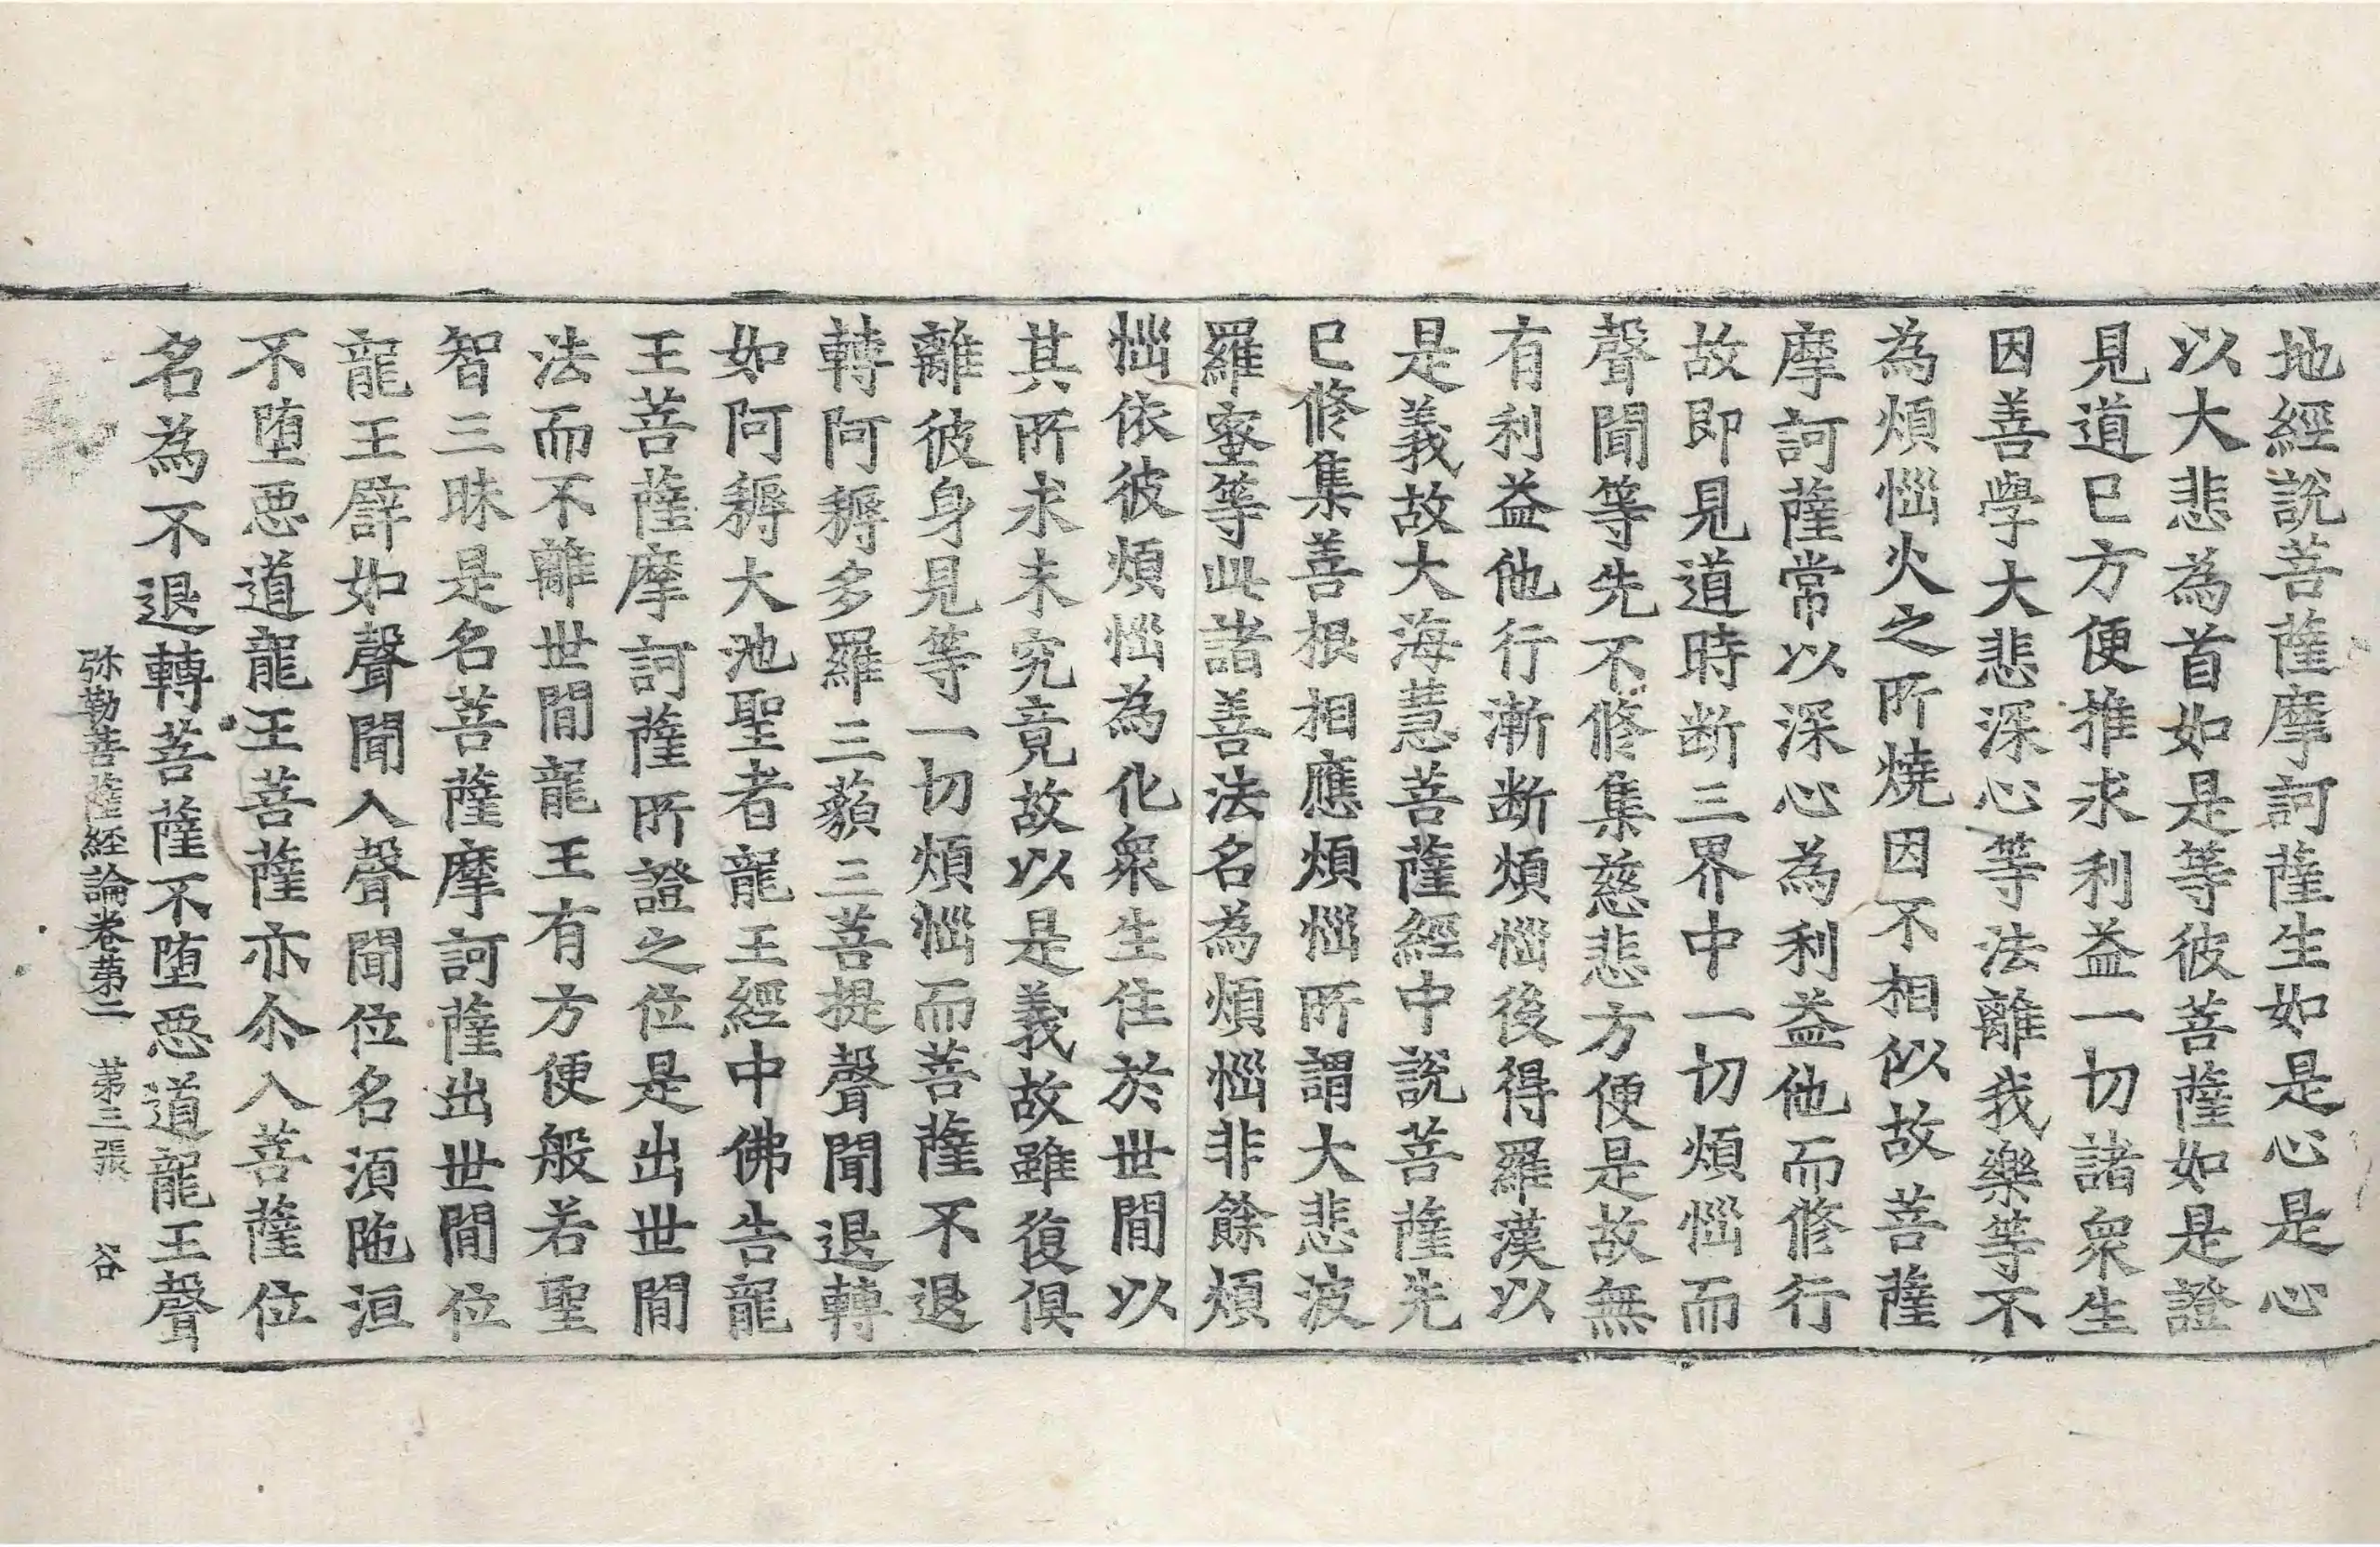 地經說菩薩摩訶薩生如是心是心
以大悲為首如是等彼菩薩如是證
見道已方便推求利益一切諸衆生
因善學大悲深心等法離我樂等不
為煩惱火之所燒因不相似故菩薩
摩訶薩常以深心為利益他而修行
故即見道時断三界中一切煩惱而
聲聞等先不修集慈悲方便是故無
有利益他行漸断煩惱後得羅漢以
是義故大海慧菩薩經中說菩薩先
已修集善根相應煩惱所謂大悲波
羅蜜等此諸善法名為煩惱非餘煩
惱依彼煩惱為化衆生住於世間以
其所求未究竟故以是義故雖復俱
離彼身見等一切煩惱而菩薩不退
轉阿耨多羅三藐三菩提聲聞退轉
如阿耨大池聖者龍王經中佛告龍
王菩薩摩訶薩所證之位是出世間
法而不離世間龍王有方便般若聖
智三昧是名菩薩摩訶薩出世間位
龍王譬如聲聞入聲聞位名湏陁洹
不墮惡道龍王菩薩亦尒入菩薩位
名為不退轉菩薩不墮惡道龍王聲
弥勒菩薩經論卷第二　第三張　谷